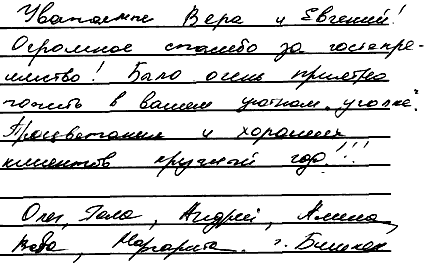 Уважаемые Вера и Евгений!
Огромное спасибо за гостепре-
имство! Было очень приятно
пожить в вашем уютном "уголке".
Процветания и хороших
клиентов круглый год!!!
Олег, Гала, Андрей, Алина,
Вова, Маргарита. г. Бишкек